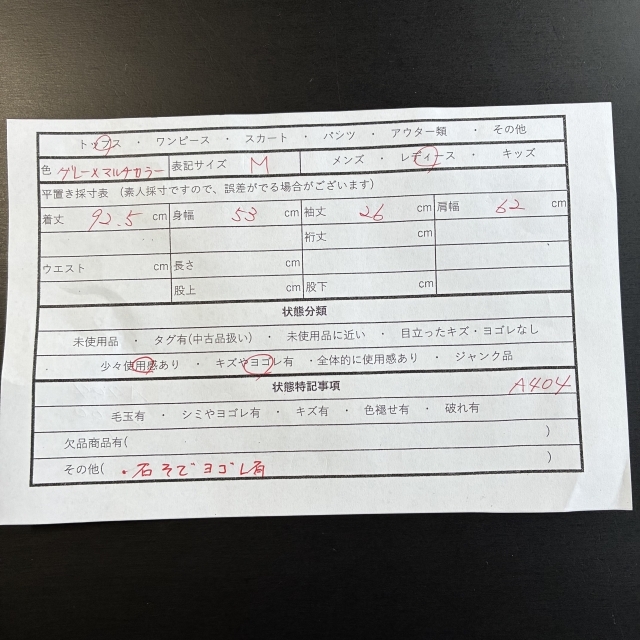 トップス ・ ワンピース ・ スカート ・ パンツ ・ アウター類 ・ その他
色 グレー×マルチカラー 表記サイズ M メンズ ・ レディース ・ キッズ
平置き採寸表 (素人採寸ですので、誤差がでる場合がございます)
着丈 92.5 cm 身幅 53 cm 袖丈 26 cm 肩幅 62 cm
裄丈 cm
ウエスト cm 長さ cm
股上 cm 股下 cm
状態分類
未使用品 ・ タグ有(中古品扱い) ・ 未使用品に近い ・ 目立ったキズ・ヨゴレなし
・ 少々使用感あり ・ キズやヨゴレ有 ・全体的に使用感あり ・ ジャンク品
状態特記事項 A404
毛玉有 ・ シミやヨゴレ有 ・ キズ有 ・ 色褪せ有 ・ 破れ有
欠品商品有( )
その他( ・右そでヨゴレ有 )